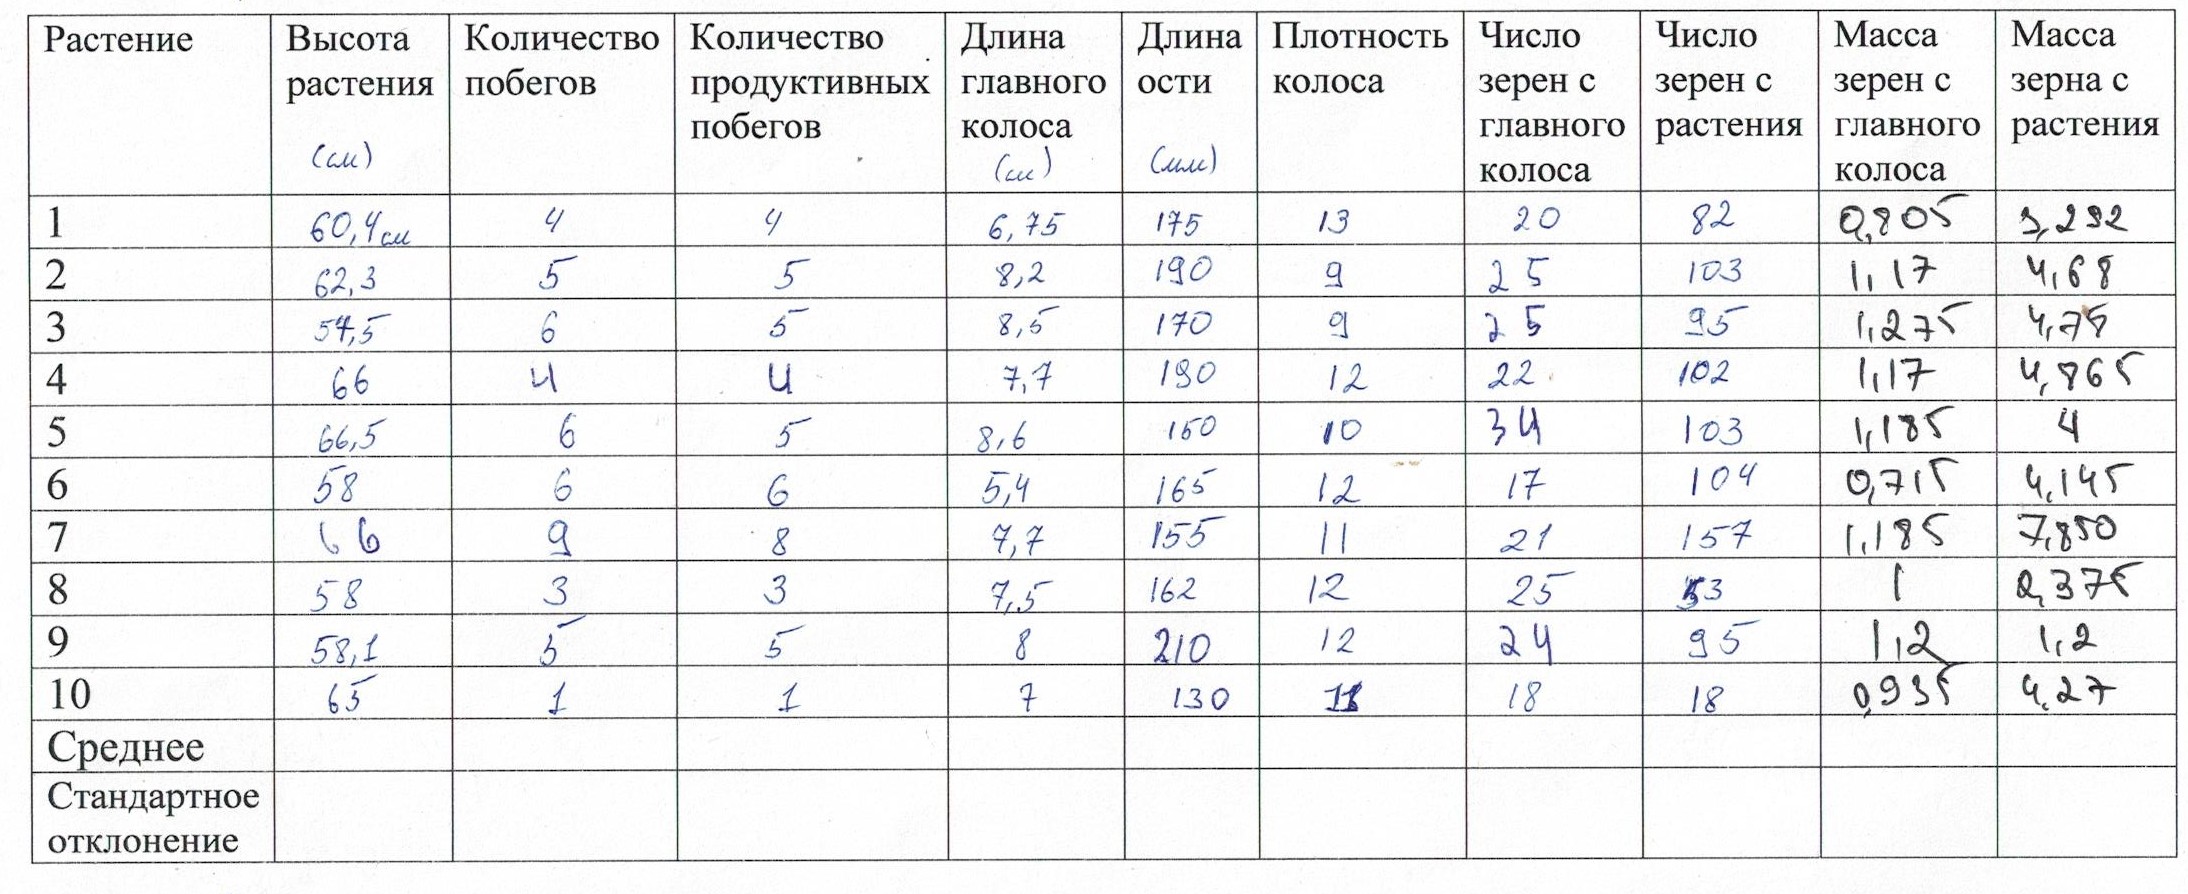 Растение Высота растения (см) Количество побегов Количество продуктивных побегов Длина главного колоса (см) Длина ости (мм) Плотность колоса Число зерен с главного колоса Число зерен с растения Масса зерен с главного колоса Масса зерна с растения
1 60,4см 4 4 6,75 175 13 20 82 0,805 3,292
2 62,3 5 5 8,2 190 9 25 103 1,17 4,68
3 6 5 8,5 170 9 25 95 1,275
4 66 4 4 7,7 190 12 22 102 1,17 4,865
5 66,5 6 5 8,6 10 34 103 1,185 4
6 58 6 6 5,4 165 12 17 104 0,715 4,145
7 66 9 8 7,7 155 11 21 157 1,185 7,850
8 58 3 3 7,5 162 12 25 53 1 2,375
9 58,1 5 5 8 210 12 24 95 1,2 1,2
10 65 1 1 7 130 18 18 0,935 4,27
Среднее
Стандартное
отклонение